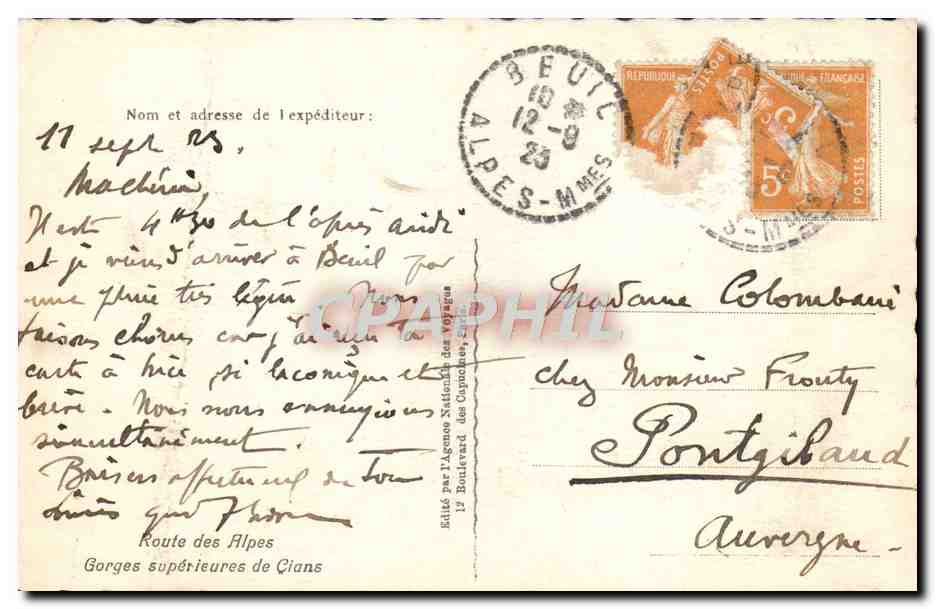 Nom et adresse de l'expéditeur :
11 sept 23.
Ma chérie,
Il est 4h30 de l'après midi
et je viens d'arriver à Beuil par
une pluie très légère. Nous
faisons chorus car j'ai eu ta
carte à Nice, si laconique et
brève. Nous nous ennuyions
simultanément.
Baisers de ton
Route des Alpes
Gorges supérieures de Çians
Edité par l'Agence Nationale des Voyages
12 Boulevard des Capucines, Paris.
BEUIL
10
12 - 9
23
ALPES-MMES
RÉPUBLIQUE
POSTES
FRANÇAISE
5c
POSTES
S-MMES
CPAPHIL
Madame Colombani
chez Monsieur Frouty
Pontgibaud
Auvergne